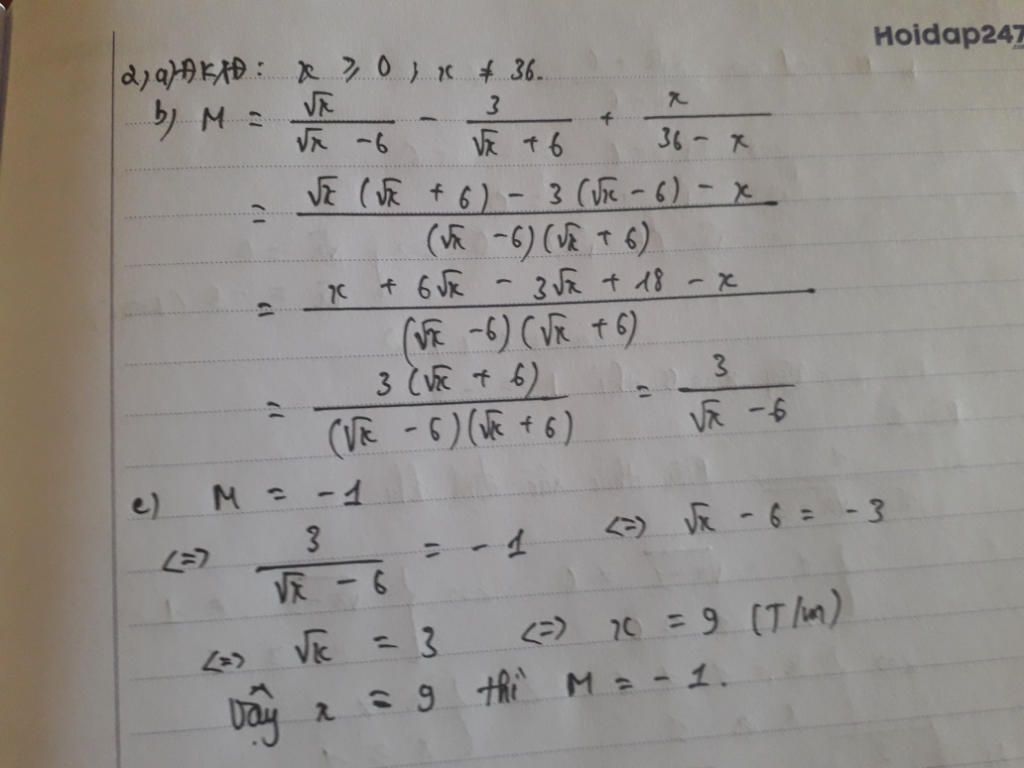 Hoidap247
2, a) ĐKXĐ: x ≥ 0; x ≠ 36.
b) M = √x/(√x - 6) - 3/(√x + 6) + x/(36 - x)
= (√x (√x + 6) - 3 (√x - 6) - x)/((√x - 6)(√x + 6))
= (x + 6√x - 3√x + 18 - x)/((√x - 6)(√x + 6))
= 3(√x + 6)/((√x - 6)(√x + 6)) = 3/(√x - 6)
c) M = -1
<=> 3/(√x - 6) = -1 <=> √x - 6 = -3
<=> √x = 3 <=> x = 9 (T/m)
Vậy x = 9 thì M = -1.